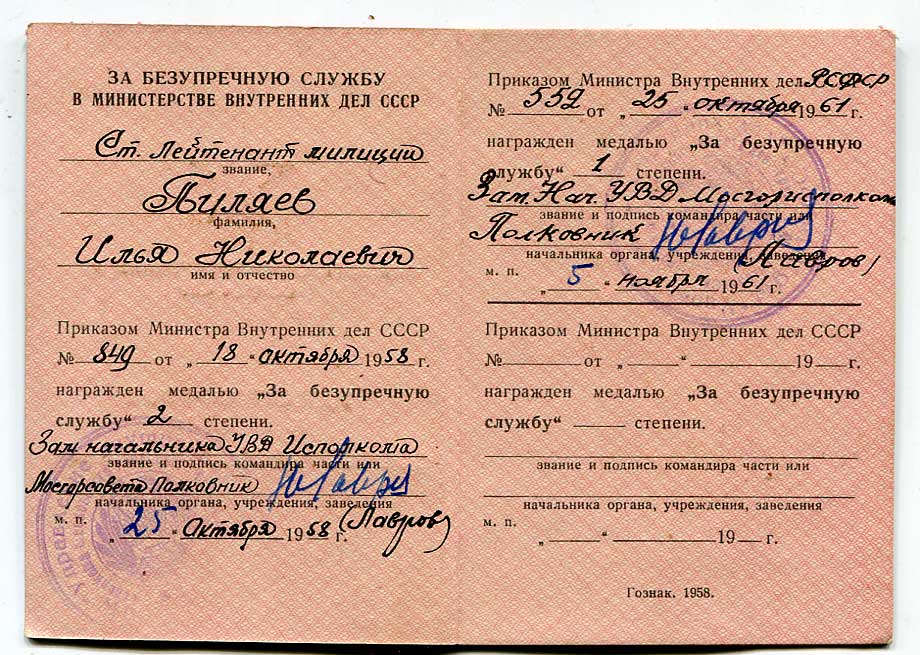 ЗА БЕЗУПРЕЧНУЮ СЛУЖБУ
В МИНИСТЕРСТВЕ ВНУТРЕННИХ ДЕЛ СССР
Ст. Лейтенант милиции
звание,
Пиляев
фамилия,
Илья Николаевич
имя и отчество
Приказом Министра Внутренних дел СССР
№ 849 от „18" октября 1958 г.
награжден медалью „За безупречную
службу" 2 степени.
Зам. начальника УВД Исполкома
звание и подпись командира части или
Мосгорсовета Полковник
начальника органа, учреждения, заведения
(Лавров)
м. п.
„25" октября 1958 г.
Приказом Министра Внутренних дел РСФСР
№ 559 от „25" октября 1961 г.
награжден медалью „За безупречную
службу" 1 степени.
Зам. Нач. УВД Мосгорисполкома
звание и подпись командира части или
Полковник
начальника органа, учреждения, заведения
(Лавров)
м. п.
„5" ноября 1961 г.
Приказом Министра Внутренних дел СССР
№ от „ " 19 г.
награжден медалью „За безупречную
службу" степени.
звание и подпись командира части или
начальника органа, учреждения, заведения
м. п.
„ " 19 г.
Гознак. 1958.